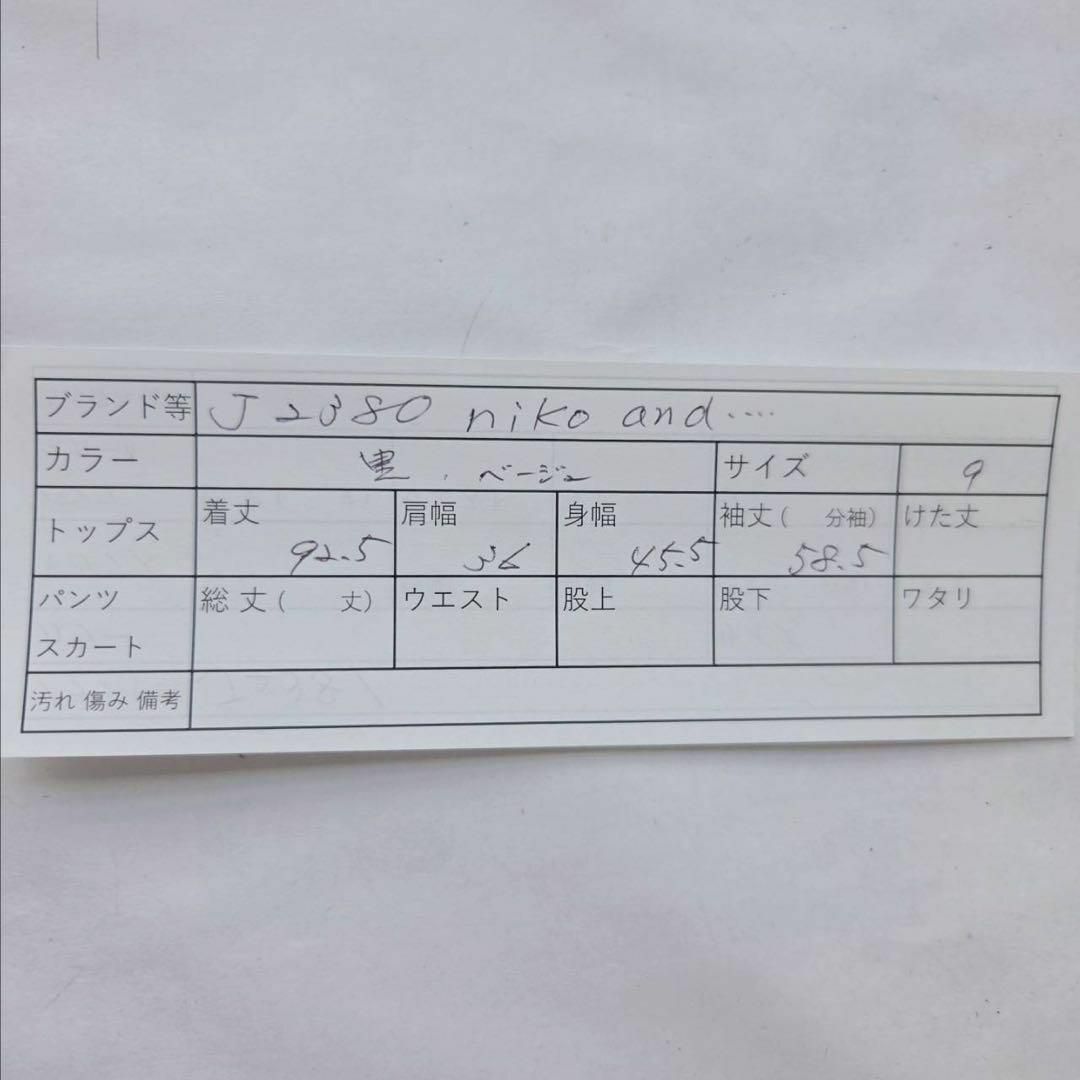 ブランド等 J2380 niko and....
カラー 黒、ベージュ サイズ 9
トップス 着丈 92.5 肩幅 36 身幅 45.5 袖丈( 分袖) 58.5 けた丈
パンツ スカート 総丈( 丈) ウエスト 股上 股下 ワタリ
汚れ 傷み 備考